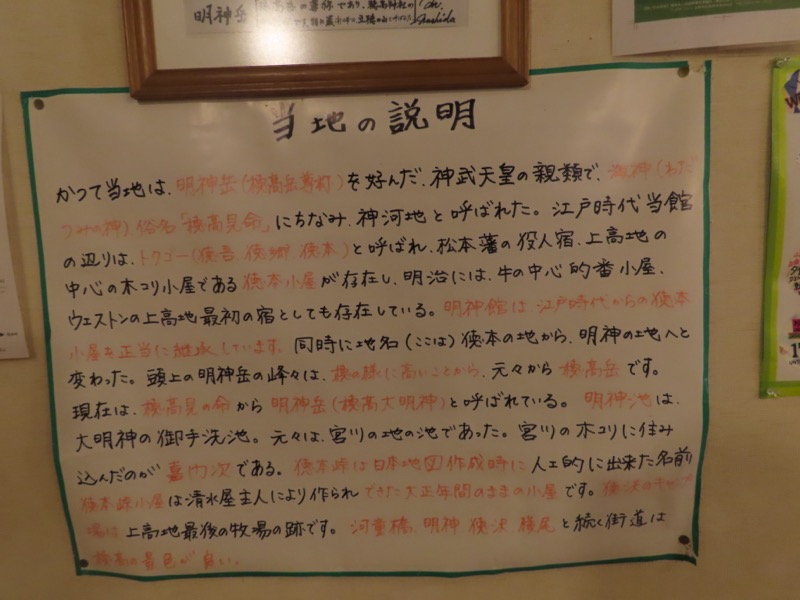 明神岳
当地の説明
かつて当地は、明神岳(穂高岳専有)を好んだ、神武天皇の親類で、海神(わた
つみの神)俗名「穂高見命」にちなみ、神河地と呼ばれた。江戸時代当館
の辺りは、トクゴー(徳吾 徳郷 徳本)と呼ばれ、松本藩の役人宿、上高地の
中心の木コリ小屋である徳本小屋が存在し、明治には、牛の中心的番小屋、
ウェストンの上高地最初の宿としても存在している。明神館は、江戸時代からの徳本
小屋を正当に継承しています。同時に地名(ここは)徳本の地から、明神の地へと
変わった。頭上の明神岳の峰々は、穂の様に高いことから、元々から穂高岳です。
現在は、穂高見の命から明神岳(穂高大明神)と呼ばれている。明神池は、
大明神の御手洗池。元々は、宮川の地の池であった。宮川の木コリに住み
込んだのが嘉門次である。徳本峠は日本地図作成時に人工的に出来た名前
徳本峠小屋は清水屋主人により作られできた大正年間のままの小屋です。徳沢のキャンプ
場は上高地最後の牧場の跡です。河童橋、明神、徳沢、横尾と続く街道は
穂高の景色が良い。